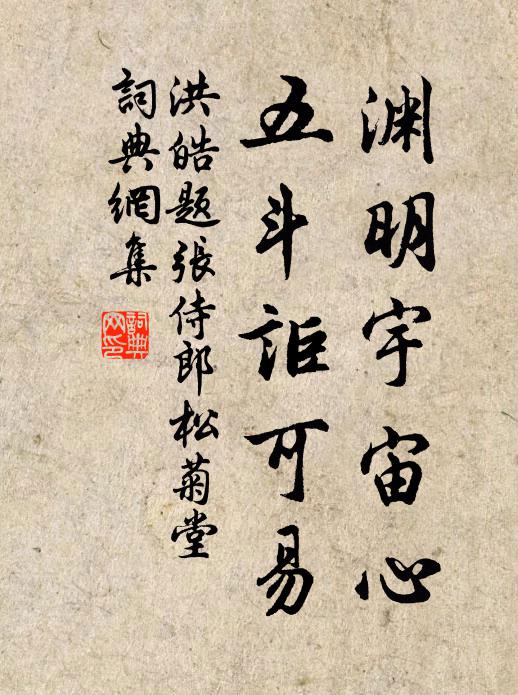 渊明宇宙心
五斗讵可易
洪皓题張侍郎松菊堂
詞典網集
詞典
网印